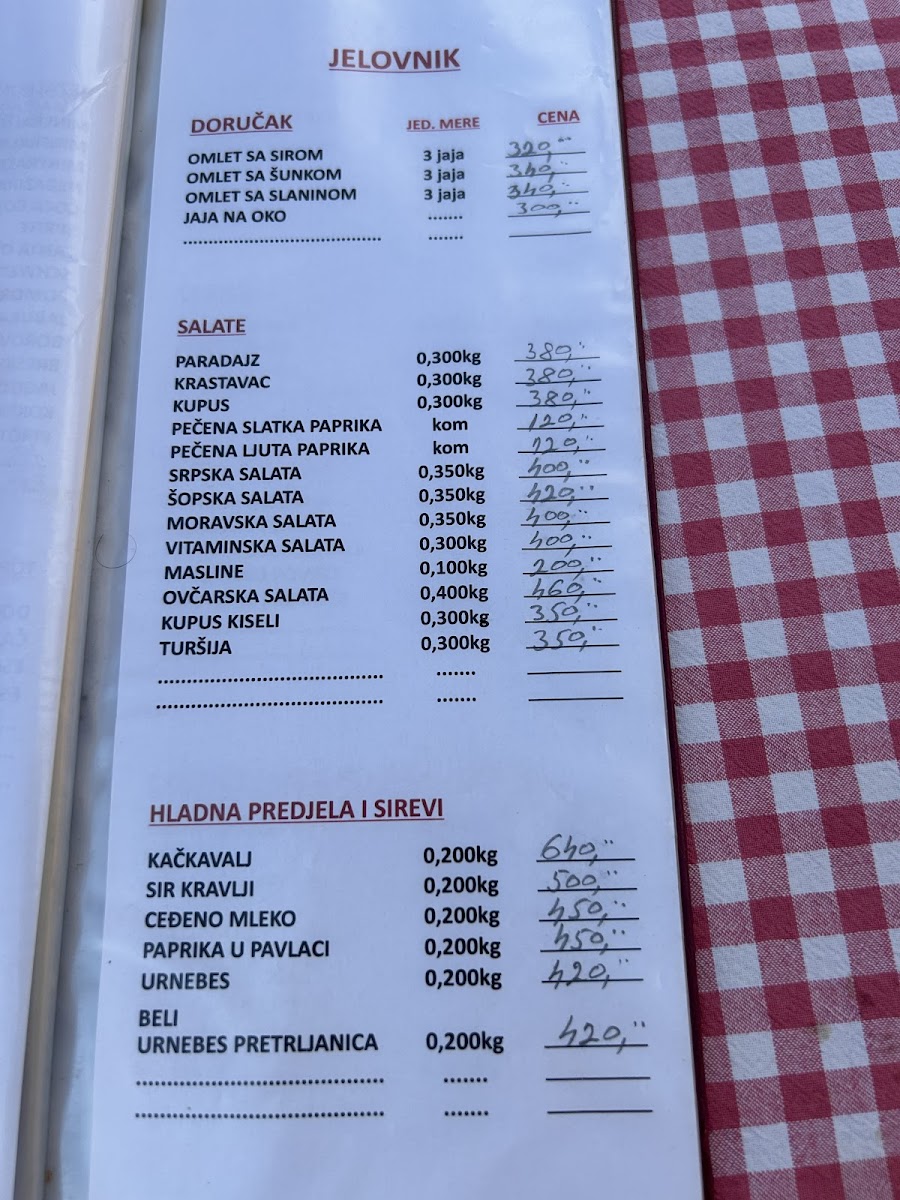 JELOVNIK
DORUČAK JED. MERE CENA
OMLET SA SIROM 3 jaja 320,-
OMLET SA ŠUNKOM 3 jaja 340,-
OMLET SA SLANINOM 3 jaja 340,-
JAJA NA OKO ....... 300,-
SALATE
PARADAJZ 0,300kg 380,-
KRASTAVAC 0,300kg 380,-
KUPUS 0,300kg 380,-
PEČENA SLATKA PAPRIKA kom 120,-
PEČENA LJUTA PAPRIKA kom 120,-
SRPSKA SALATA 0,350kg 400,-
ŠOPSKA SALATA 0,350kg 420,-
MORAVSKA SALATA 0,350kg 400,-
VITAMINSKA SALATA 0,300kg 400,-
MASLINE 0,100kg 200,-
OVČARSKA SALATA 0,400kg 460,-
KUPUS KISELI 0,300kg 350,-
TURŠIJA 0,300kg 350,-
HLADNA PREDJELA I SIREVI
KAČKAVALJ 0,200kg 640,-
SIR KRAVLJI 0,200kg 500,-
CEĐENO MLEKO 0,200kg 450,-
PAPRIKA U PAVLACI 0,200kg 450,-
URNEBES 0,200kg 420,-
BELI
URNEBES PRETRLJANICA 0,200kg 420,-